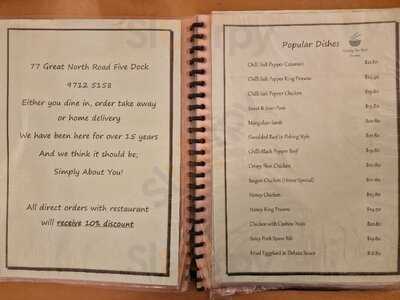 77 Great North Road Five Dock
9712 5158
Either you dine in, order take away
or home delivery
We have been here for over 15 years
And we think it should be;
Simply About You!
All direct orders with restaurant
will receive 10% discount
Popular Dishes
Chilli Salt Pepper Calamari
Chilli Salt Pepper King Prawns
Chilli Salt Pepper Chicken
Sweet & Sour Pork
Mongolian Lamb
Shredded Beef in Peking Style
Chilli Black Pepper Beef
Crispy Skin Chicken
Saigon Chicken (House Special)
Honey Chicken
Honey King Prawns
Chicken with Cashew Nuts
Spicy Pork Spare Rib
Fried Eggplant in Deluxe Sauce